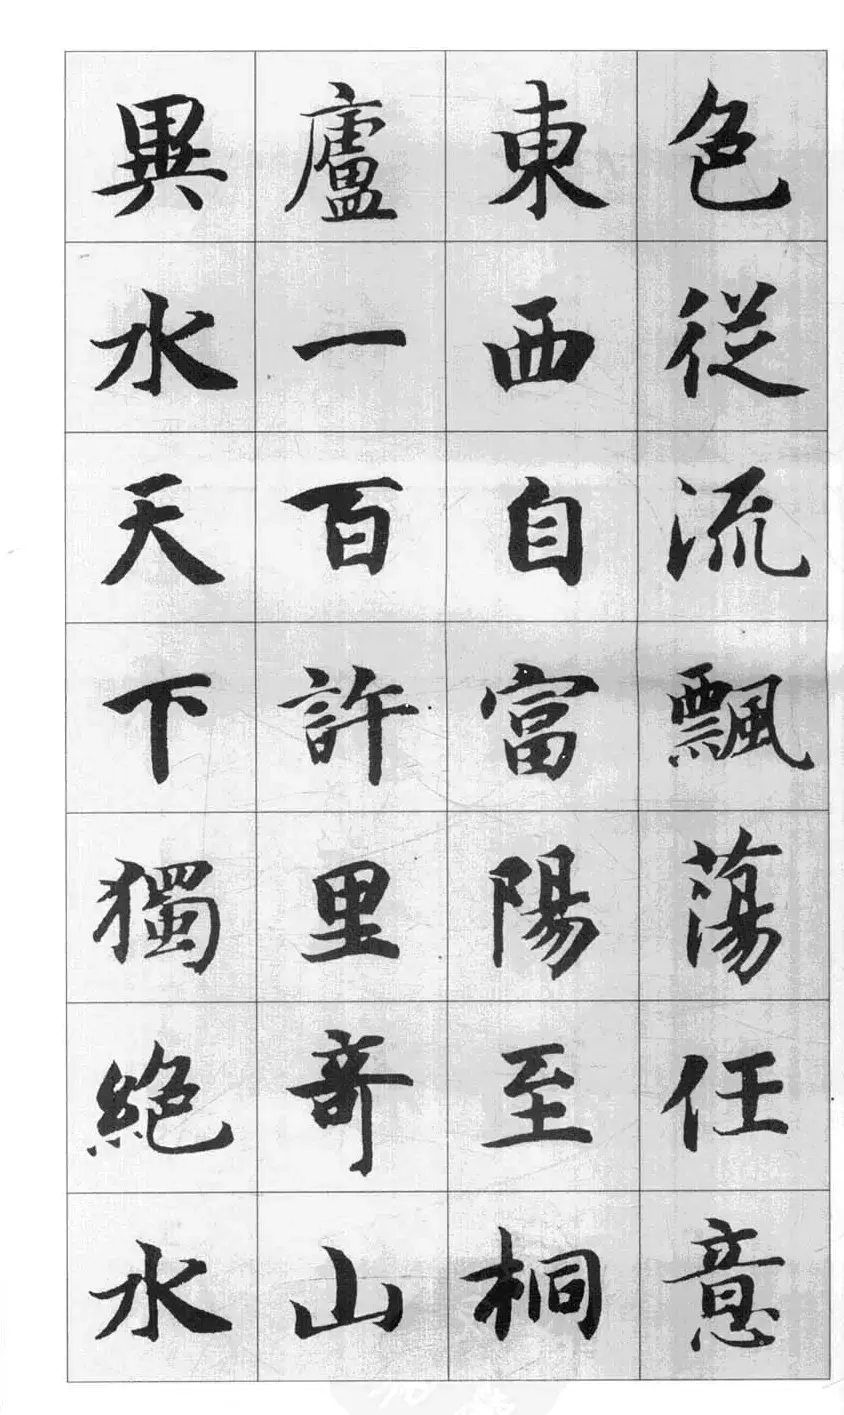 色從流飄蕩任意
東西自富陽至桐
廬一百許里奇山
異水天下獨絕水